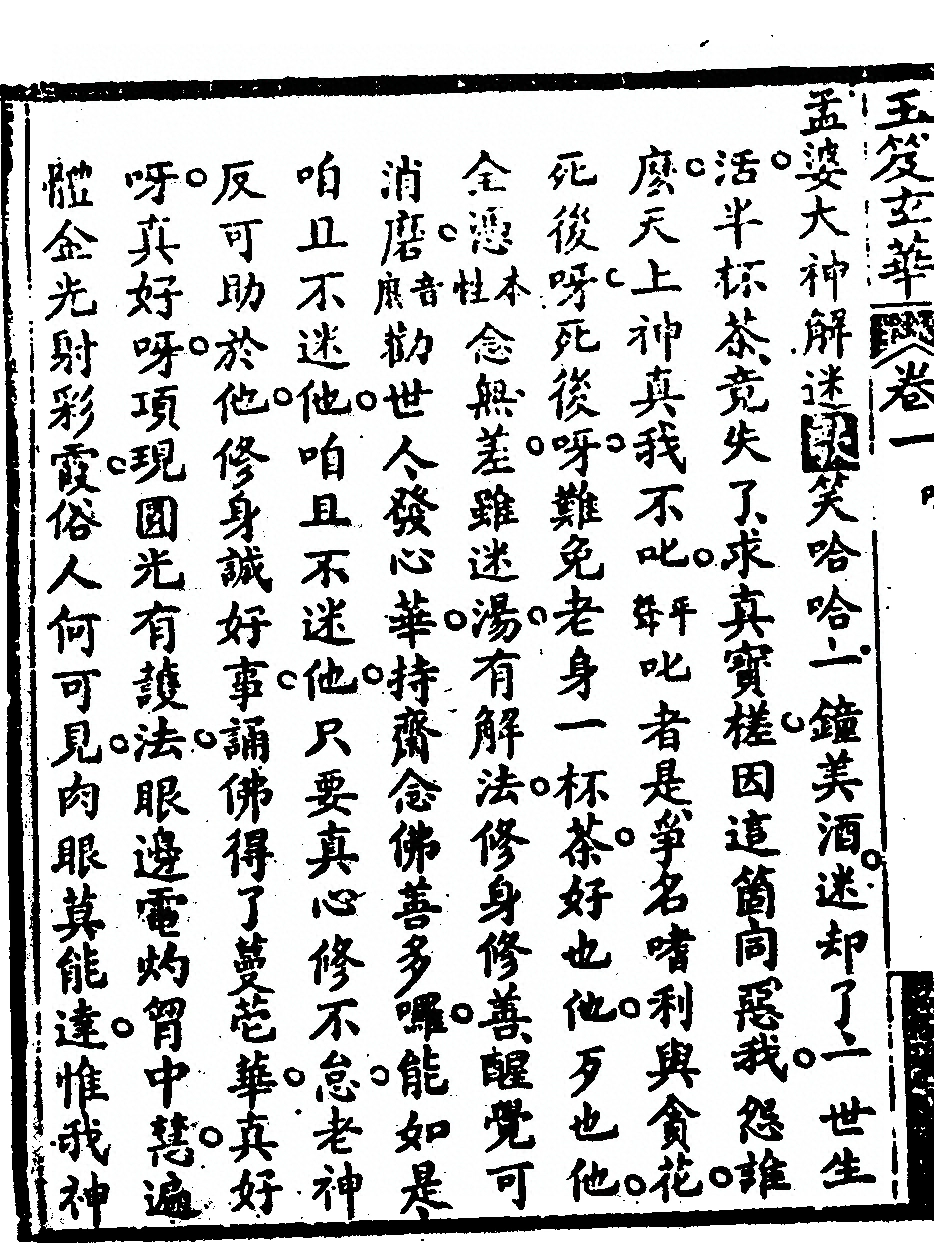 玉笈玄華 卷一
孟婆大神解迷歌笑哈哈一鐘美酒迷却了一世生
活半杯茶竟失了求真寶槎因這箇同惡我怨誰
麽天上神真我不叱平聲叱者是爭名嗜利與貪花
死後呀死後呀難免老身一杯茶好也他歹也他
全憑本性念無差雖迷湯有解法修身修善醒覺可
消磨音麻勸世人發心華持齋念佛善多囉能如是
咱且不迷他咱且不迷他只要真心修不怠老神
反可助於他修身誠好事誦佛得了蔓芭華真好
呀真好呀項現圓光有護法眼邊電灼胷中慧遍
體金光射彩霞俗人何可見肉眼莫能達惟我神